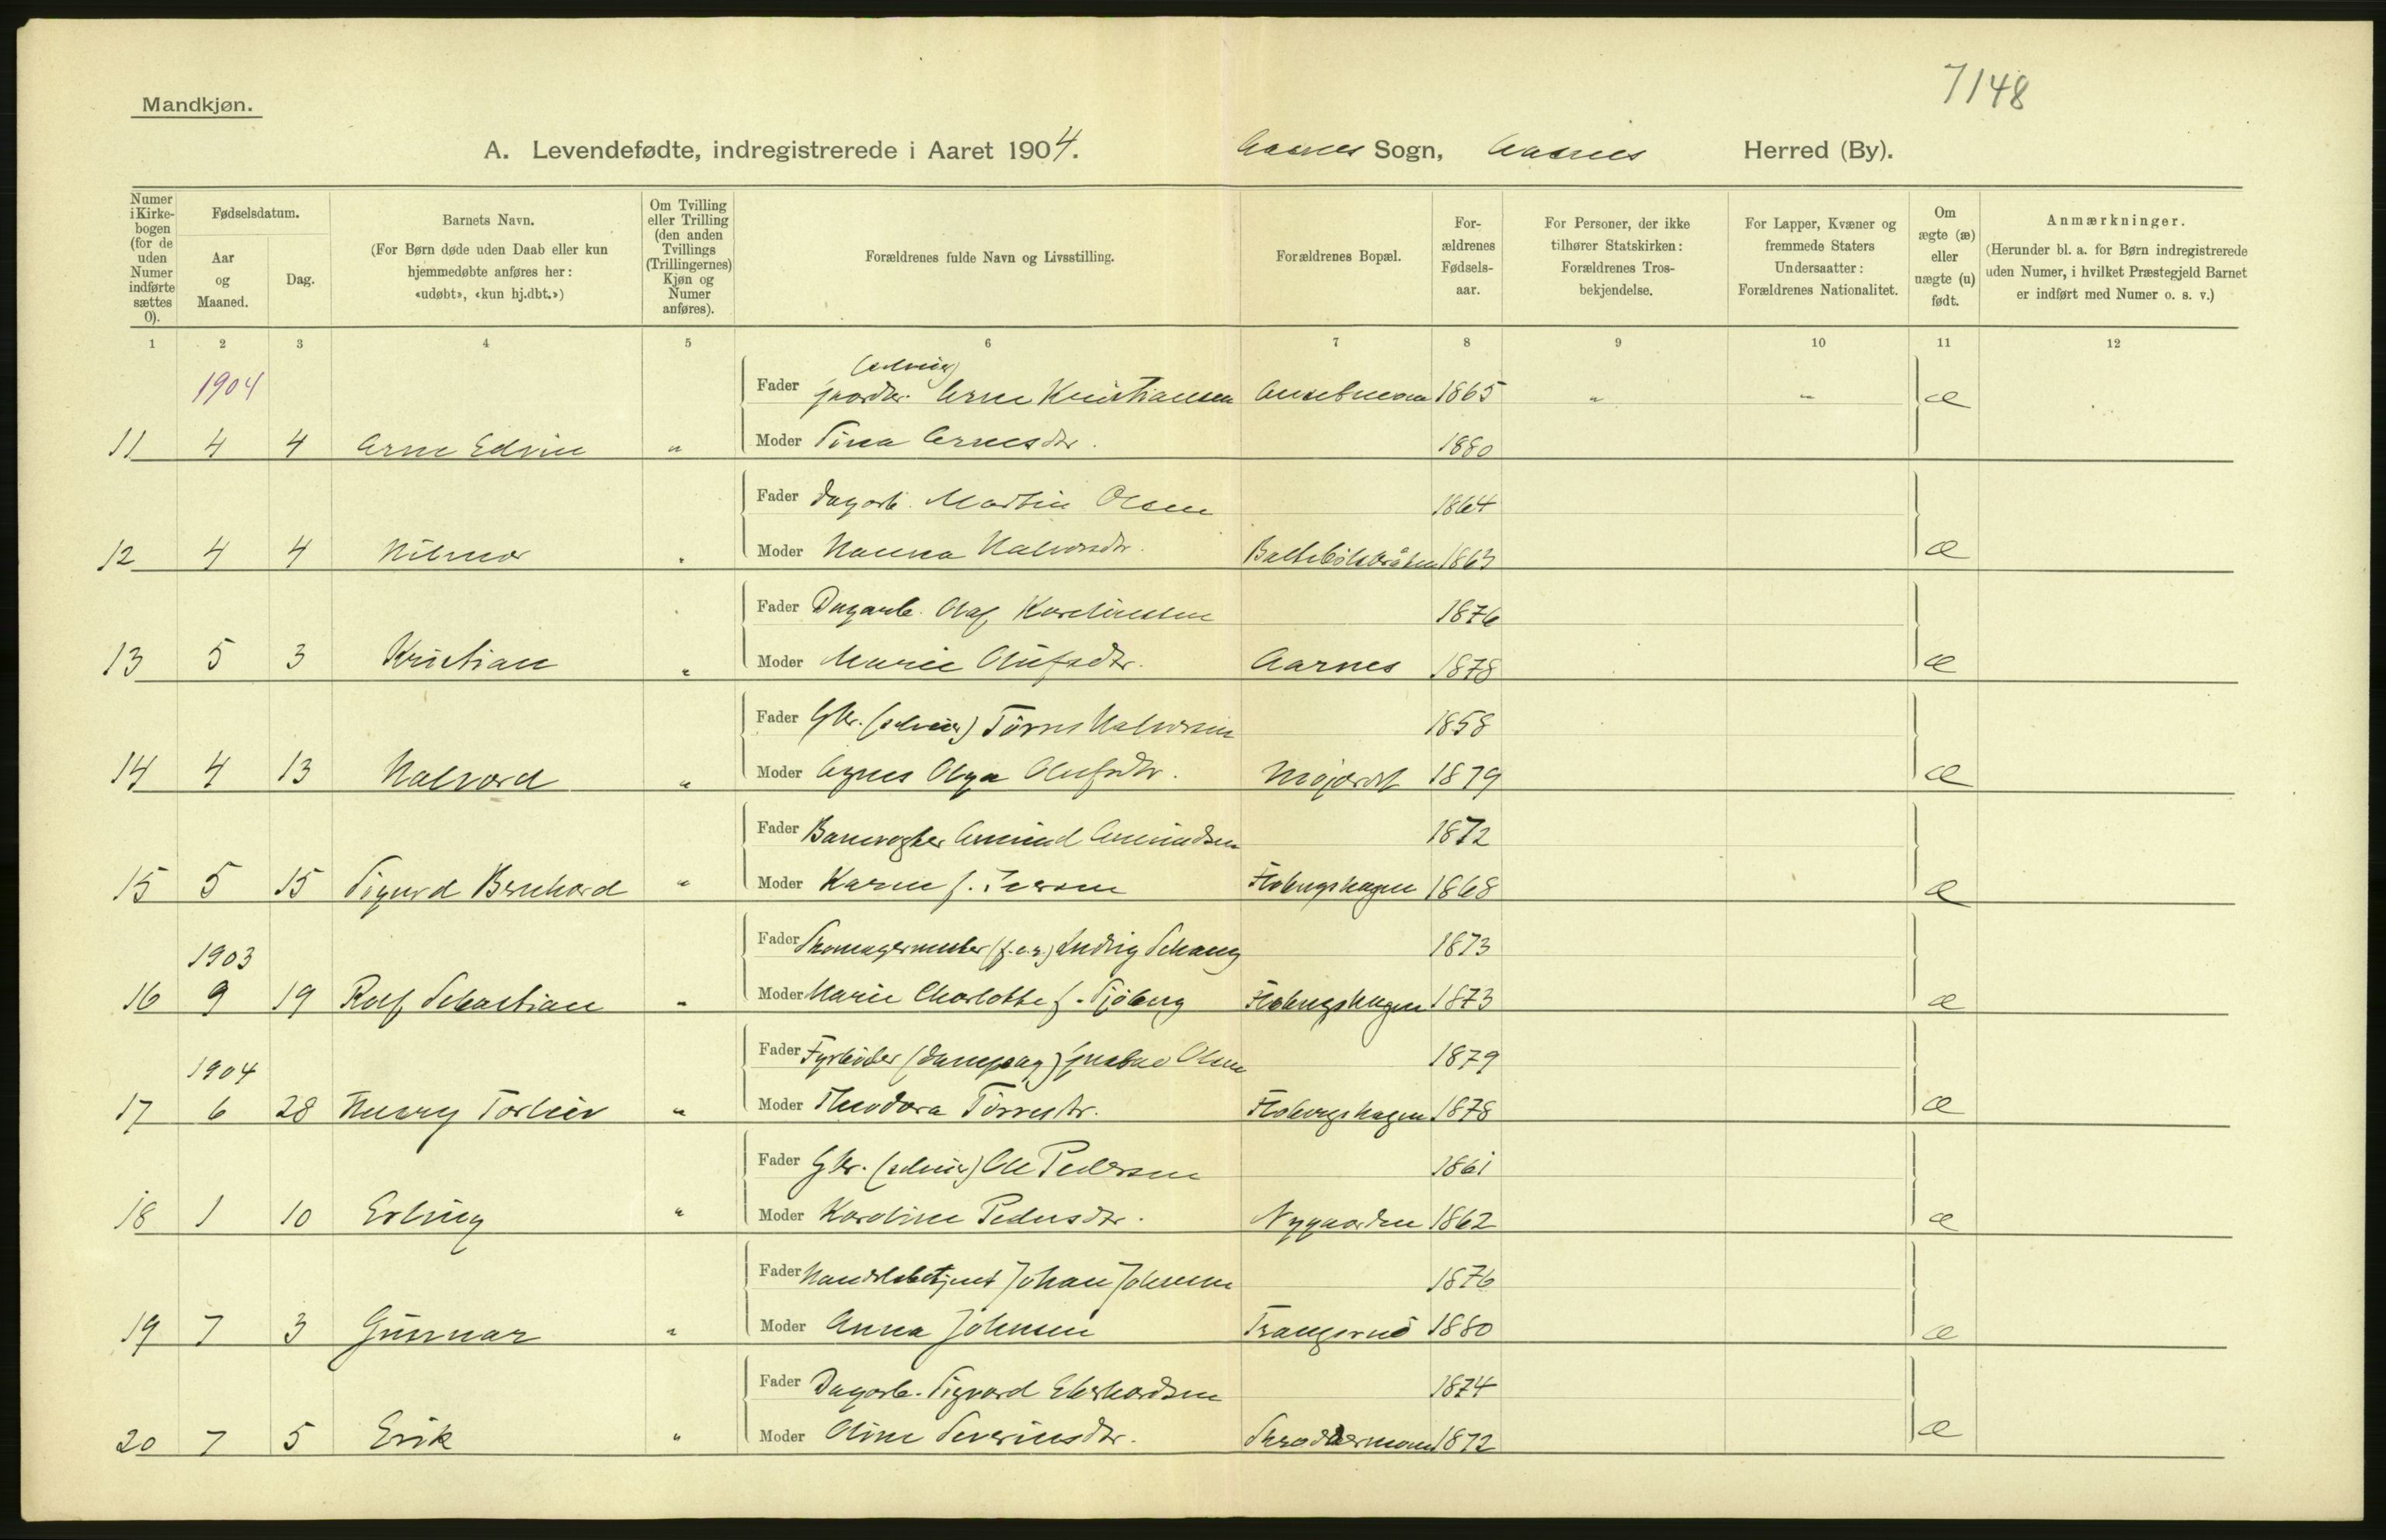 7148
Mandkjøn.
A. Levendefødte, indregistrerede i Aaret 1904. Aasnes Sogn, Aasnes Herred (By).
Numer i Kirke-bogen (for de uden Numer indførte sættes 0).
Fødselsdatum.
Aar og Maaned.
Dag.
Barnets Navn.
(For Børn døde uden Daab eller kun hjemmedøbte anføres her: «udøbt», «kun hj.dbt.»)
Om Tvilling eller Trilling (den anden Tvillings (Trillingernes) Kjøn og Numer anføres).
Forældrenes fulde Navn og Livsstilling.
Forældrenes Bopæl.
For-ældrenes Fødsels-aar.
For Personer, der ikke tilhører Statskirken: Forældrenes Tros-bekjendelse.
For Lapper, Kvæner og fremmede Staters Undersaatter: Forældrenes Nationalitet.
Om ægte (æ) eller uægte (u) født.
Anmærkninger.
(Herunder bl. a. for Børn indregistrerede uden Numer, i hvilket Præstegjeld Barnet er indført med Numer o. s. v.)
1 2 3 4 5 6 7 8 9 10 11 12
1904 Fader (selveier) gaardbr. Arne Kristiansen 1865 " " æ
11 4 4 Arne Edvin " Moder Tina Arnesdtr. 1880
Fader Dagarb. Martin Olsen 1864
12 4 4 Hilmar " Moder Hanna Halvorsdtr. 1863 æ
Fader Dagarb. Olaf Kareliussen 1876
13 5 3 Kristian " Moder Marie Olufsdtr. Aarnes 1878 æ
Fader Gbr. (selveier) Törres Halvorsen 1858
14 4 13 Halvord " Moder Agnes Olga Olufsdtr. 1879 æ
Fader Banevogter Amund Amundsen 1872
15 5 15 Sigurd Bernhard " Moder Karen f. Iversen Flobergshagen 1868 æ
1903 Fader Skomagermester (f. e. r.) Ludvig Schang 1873
16 9 19 Rolf Sebastian " Moder Marie Charlotte f. Sjöberg Flobergshagen 1873 æ
1904 Fader Fyrbøder (dampsag) Gustav Olsen 1879
17 6 28 Henry Torleiv " Moder Theodora Törresdtr. Flobergshagen 1878 æ
Fader Gbr. (selveier) Ole Pedersen 1861
18 1 10 Erling " Moder Karoline Pedersdtr. Nygaarden 1862 æ
Fader Handelsbetjent Johan Johnsen 1876
19 7 3 Gunnar " Moder Anna Johnsen 1880 æ
Fader Dagarb. Sigvard Eberhardsen 1874
20 7 5 Erik " Moder Oline Severinsdtr. 1872 æ